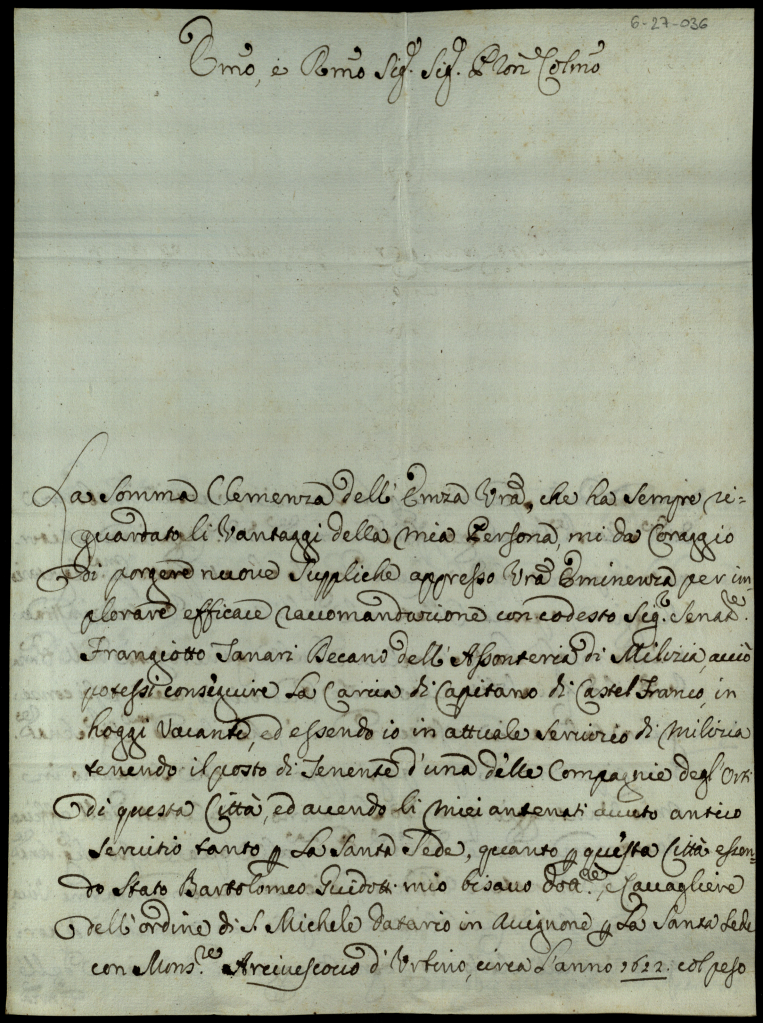 6-27-036
Emo, e Rmo Sig.r Sig.r Pron Colmo
La Somma Clemenza dell' Emza Vra, che ha sempre ri=
guardato li Vantaggi della mia Persona, mi da Coraggio
di porgere nuove Suppliche appresso Vra Eminenza per im=
plorare efficace raccomandazione con codesto Sig.r Senat.re
Frangiotto Tanari Decano dell' Assonteria di Milizia, acciò
potessi conseguire La Carica di Capitano di Castel Franco, in
hoggi Vacante, ed essendo io in attuale servizio di milizia
tenendo il posto di Tenente d'una delle Compagnie degl' Orti
di questa Città, ed avendo li miei antenati avuto antico
servitio tanto p La Santa Sede, quanto p questa Città essen=
do Stato Bartolomeo Guidotti mio bisavo Dott.re, e Cavagliere
dell' ordine di S. Michele Datario in Avignone p La Santa Sede
con Mons.re Arcivescovo d' Urbino, circa L'anno 1622. col peso